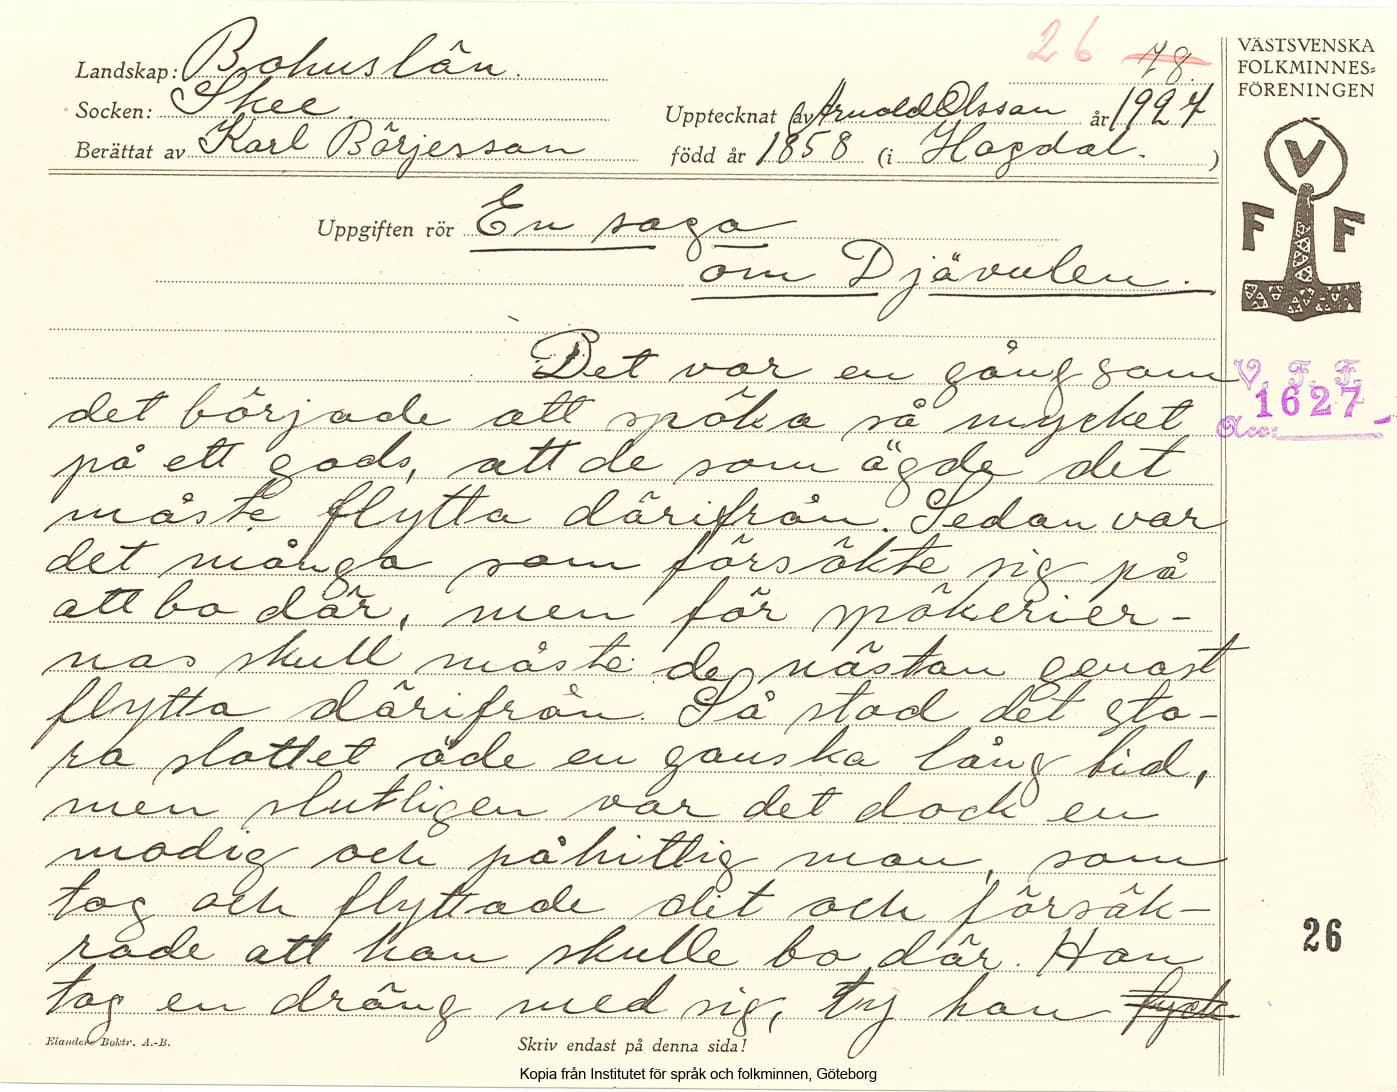 Landskap: Bohuslän.
Socken: Skee.
Berättat av Karl Börjesson
26 78.
Upptecknat av Arnold Olsson år 1927
född år 1858 (i Hogdal. )
VÄSTSVENSKA
FOLKMINNES=
FÖRENINGEN
V
F F
Uppgiften rör En saga
om Djävulen.
Det var en gång som
det började att spöka så mycket
på ett gods, att de som ägde det
måste flytta därifrån. Sedan var
det många som försökte sig på
att bo där, men för spökerier-
nas skull måste de nästan genast
flytta därifrån. Så stod det sto-
ra slottet öde en ganska lång tid,
men slutligen var det dock en
modig och påhittig man, som
tog och flyttade dit och försäk-
rade att han skulle bo där. Han
tog en dräng med sig, ty han fyck
V. F. F.
1627
Acc:
26
Elanders Boktr. A.-B.
Skriv endast på denna sida!
Kopia från Institutet för språk och folkminnen, Göteborg